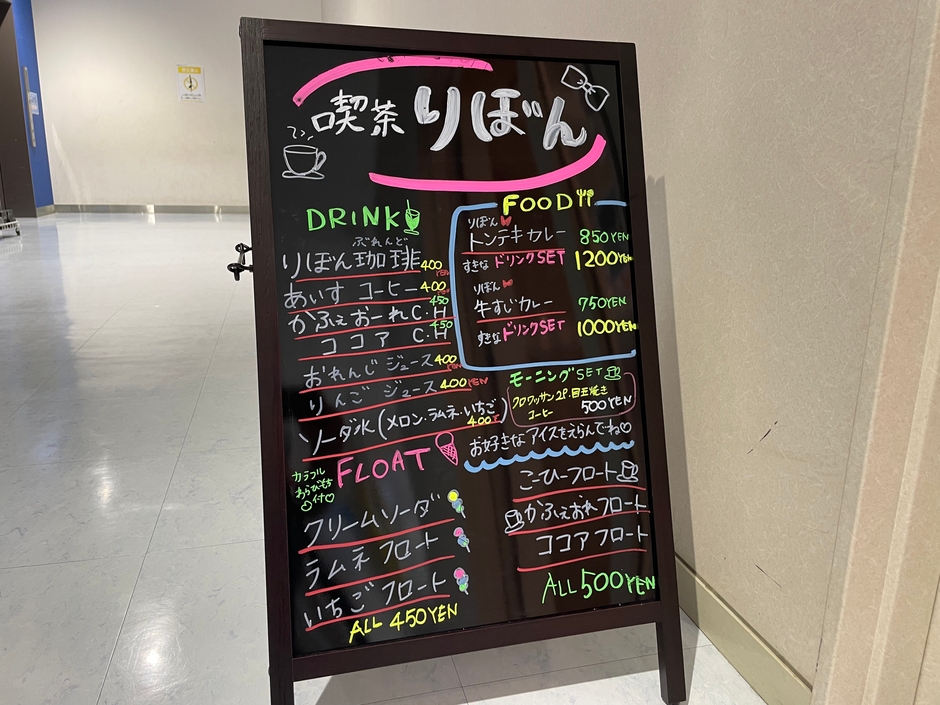 喫茶 りぼん
DRINK
ぶれんど
りぼん珈琲 400 YEN
あいす コーヒー 400
かふぇおーれ C.H 450
ココア C.H 450
おれんじ ジュース 400
りんご ジュース 400 YEN
ソーダ水 (メロン・ラムネ・いちご) 400
FOOD
りぼん
トンテキカレー 850 YEN
すきな ドリンクSET 1200 YEN
りぼん
牛すじカレー 750 YEN
すきな ドリンクSET 1000 YEN
モーニングSET
クロワッサン2P・目玉焼き
コーヒー 500 YEN
お好きなアイスをえらんでね♡
FLOAT
カラフル
わらびもち
付♡
クリームソーダ
ラムネ フロート
いちご フロート
ALL 450 YEN
こーひーフロート
かふぇおれ フロート
ココア フロート
ALL 500 YEN